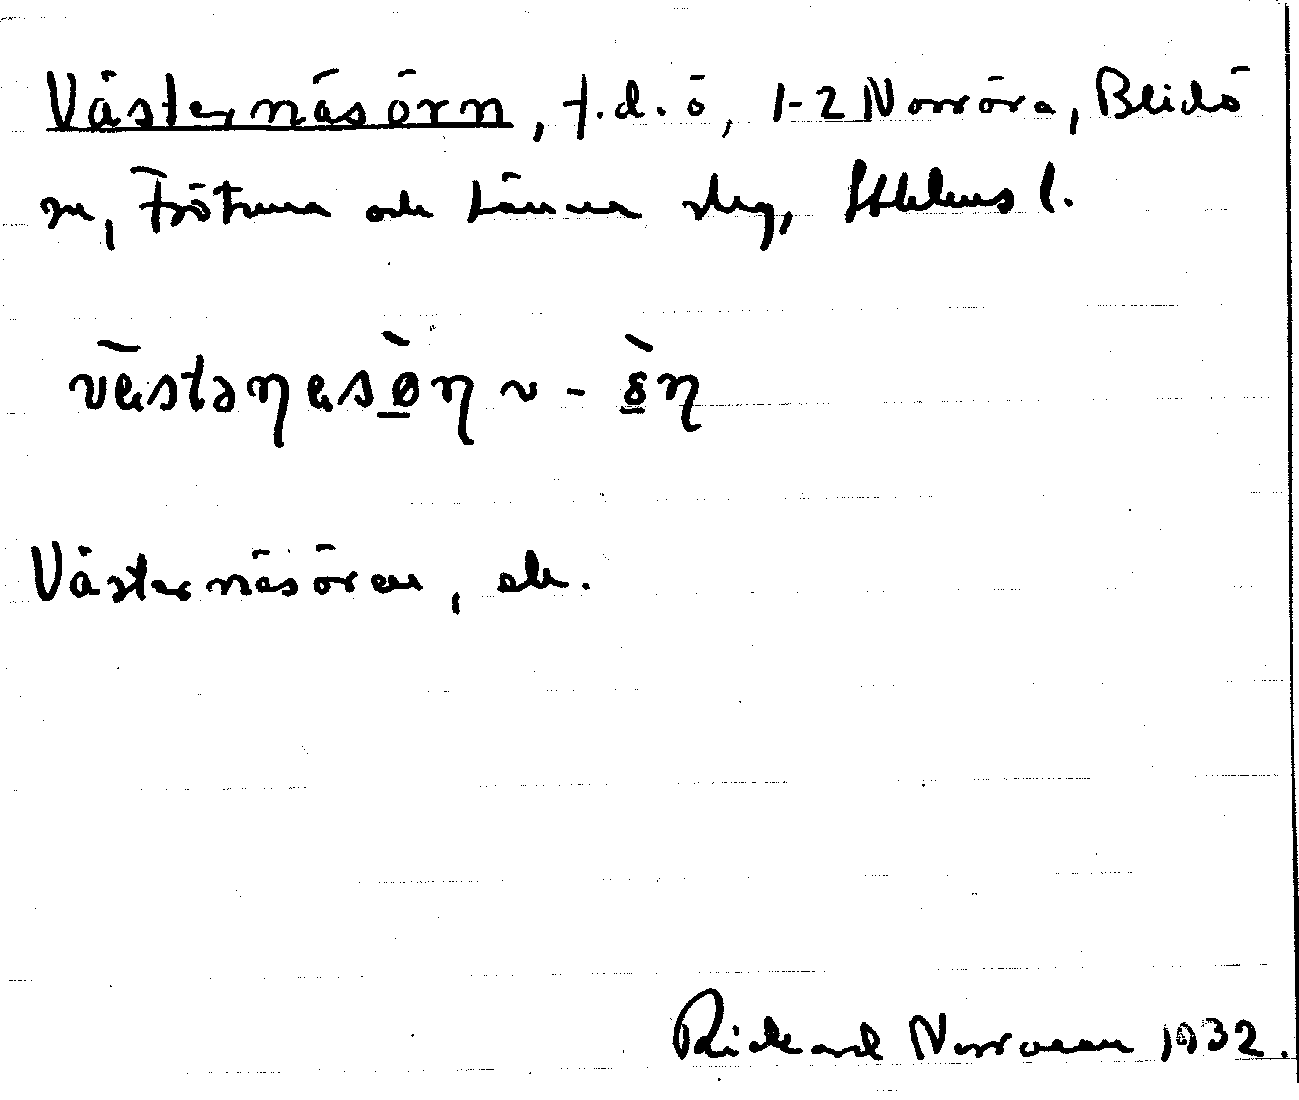 Västernäsörn, f.d. ö, 1-2 Norröra, Blidö
sn, Frötuna och Länna slg, Sthlms l.
vȁstəηas<u>ø̀</u>η ~ -<u>ὸ</u>η
Västernäsören, ek.
Rickard Norroeen 1932.